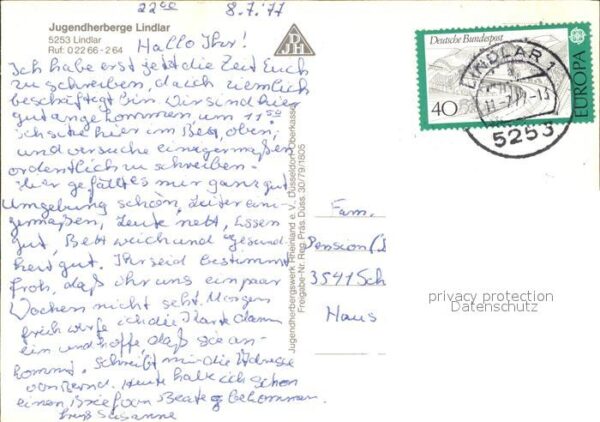 22⁰⁰ 8.7.77
Jugendherberge Lindlar
5253 Lindlar
Ruf: 0 22 66 - 2 64
DJH
Hallo Ihr!
Ich habe erst jetzt die Zeit Euch
zu schreiben, da ich ziemlich
beschäftigt bin. Wir sind hier
gut angekommen, um 11⁰⁰
ich sitze hier im Bett, oben,
und versuche einigermaßen
ordentlich zu schreiben.
Hier gefällt es mir ganz gut
Umgebung schön, Leiter eini-
germaßen, Leute nett, Essen
gut, Bett weich und Gesund-
heit gut. Ihr seid bestimmt
froh, daß ihr uns ein paar
Wochen nicht seht. Morgen
früh werfe ich die Karte dann
ein und hoffe, daß sie an-
kommt. Schreibt mir die Adresse
von Bernd. Heute habe ich schon
einen Brief von Beate bekommen.
Gruß Susanne
Jugendherbergswerk Rheinland e. V. Düsseldorf-Oberkassel
Freigabe-Nr. Reg. Präs. Düss. 30/79/1805
Deutsche Bundespost
40
EUROPA
LINDLAR 1
11.-7.77-15
5253
Fam.
Pension
3541 Sch
Haus
privacy protection
Datenschutz